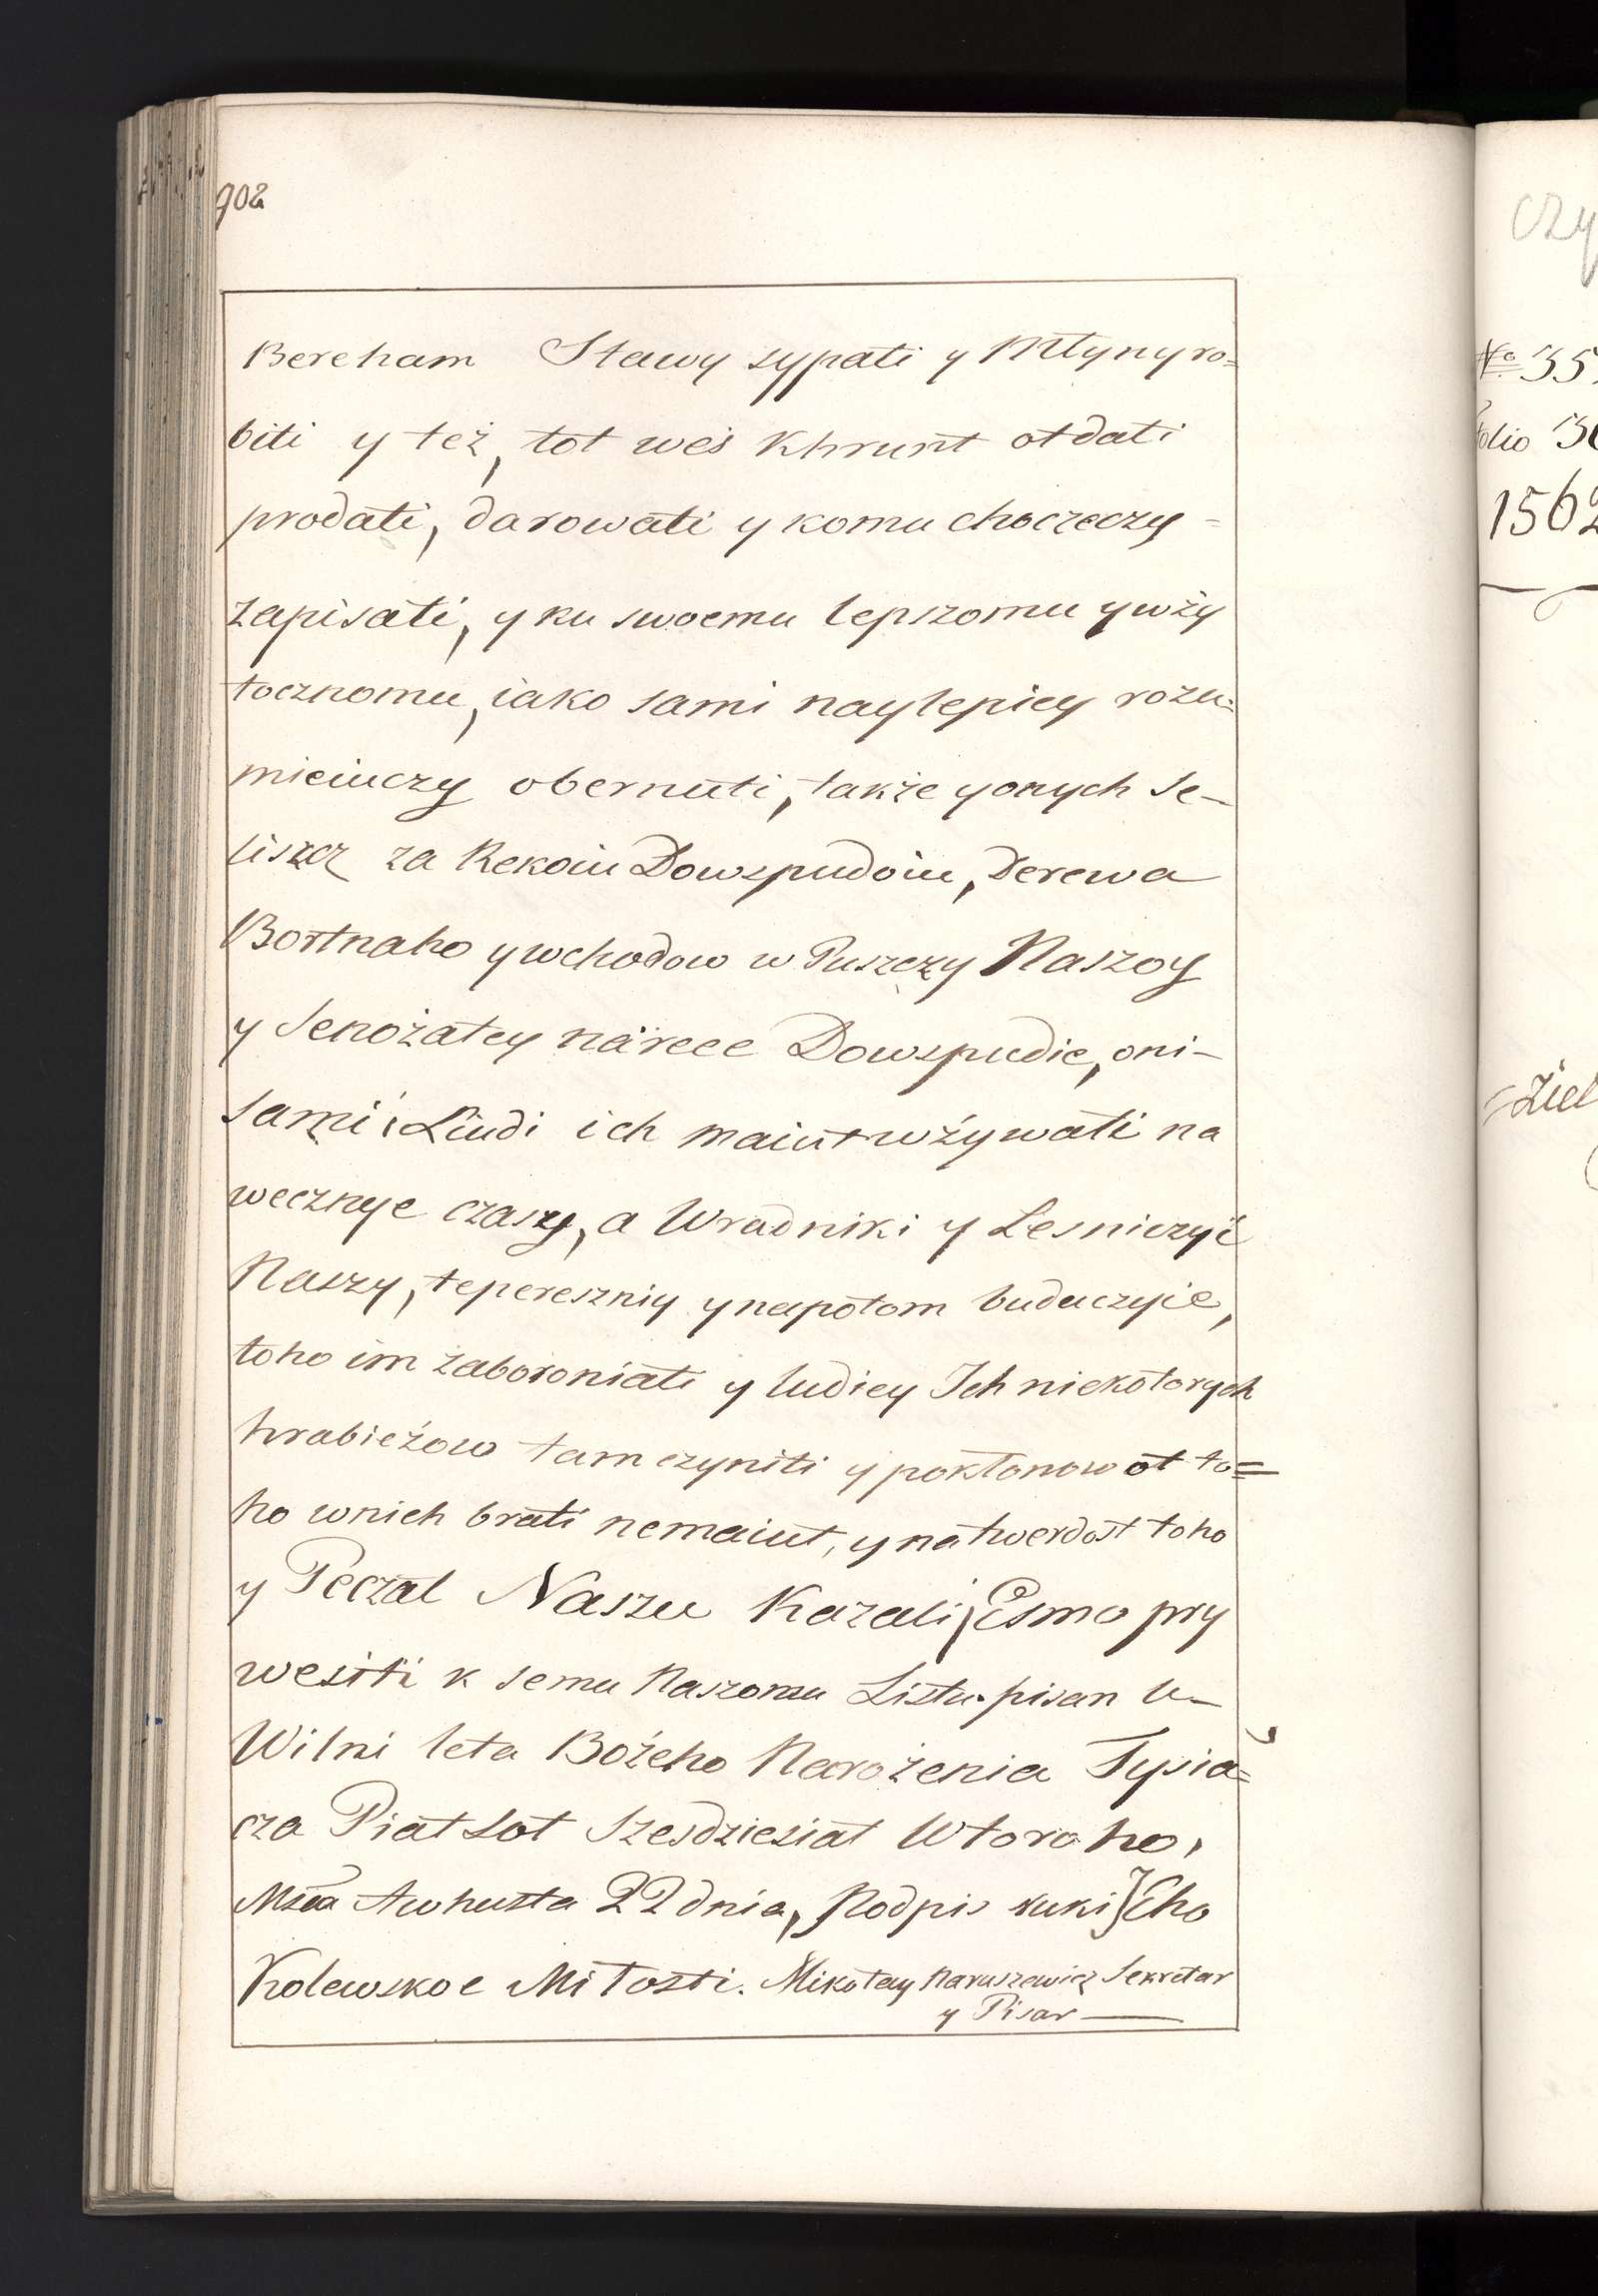 902
Bereham Stawy sypati y Młyny ro=
biti y też, tot weś Khrunt otdati
prodati, darowati y komu choczeczy =
zapisati, y ku swoemu lepszomu y wży
tocznomu, iako sami naylepiey rozu=
mieiuczy obernuti, także y onych Se-
liszcz za Rekoiu Dowspudoiu, Derewa
Bortnaho y wchodow w Puszczy Naszoy
y Senożatey na rece Dowspudie, oni-
sami i Liudi ich maiut wżywati na
wecznye czasy, a Wradniki y Lesniczyie
Naszy, tepereszniy y napotom buduczyie,
toho im zaboroniati y ludiey Ich niekotorych
hrabieżow tam czyniti y pokłonow ot to=
ho wnich brati nemaiut, y na twerdost toho
y Peczat Naszu Kazali Esmo pry
wesiti k semu Naszomu Listu. pisan u-
Wilni leta Bożeho Narożenia Tysia=
cza Piat Sot Szesdziesiat Wtoroho,
Msca Awhusta 22 dnia, Podpis ruki Eho
Kolewskoe Miłosti. Mikołay Naruszewicz Sekretar
y Pisar
czy
No 35
folio 30
1562
Ziel